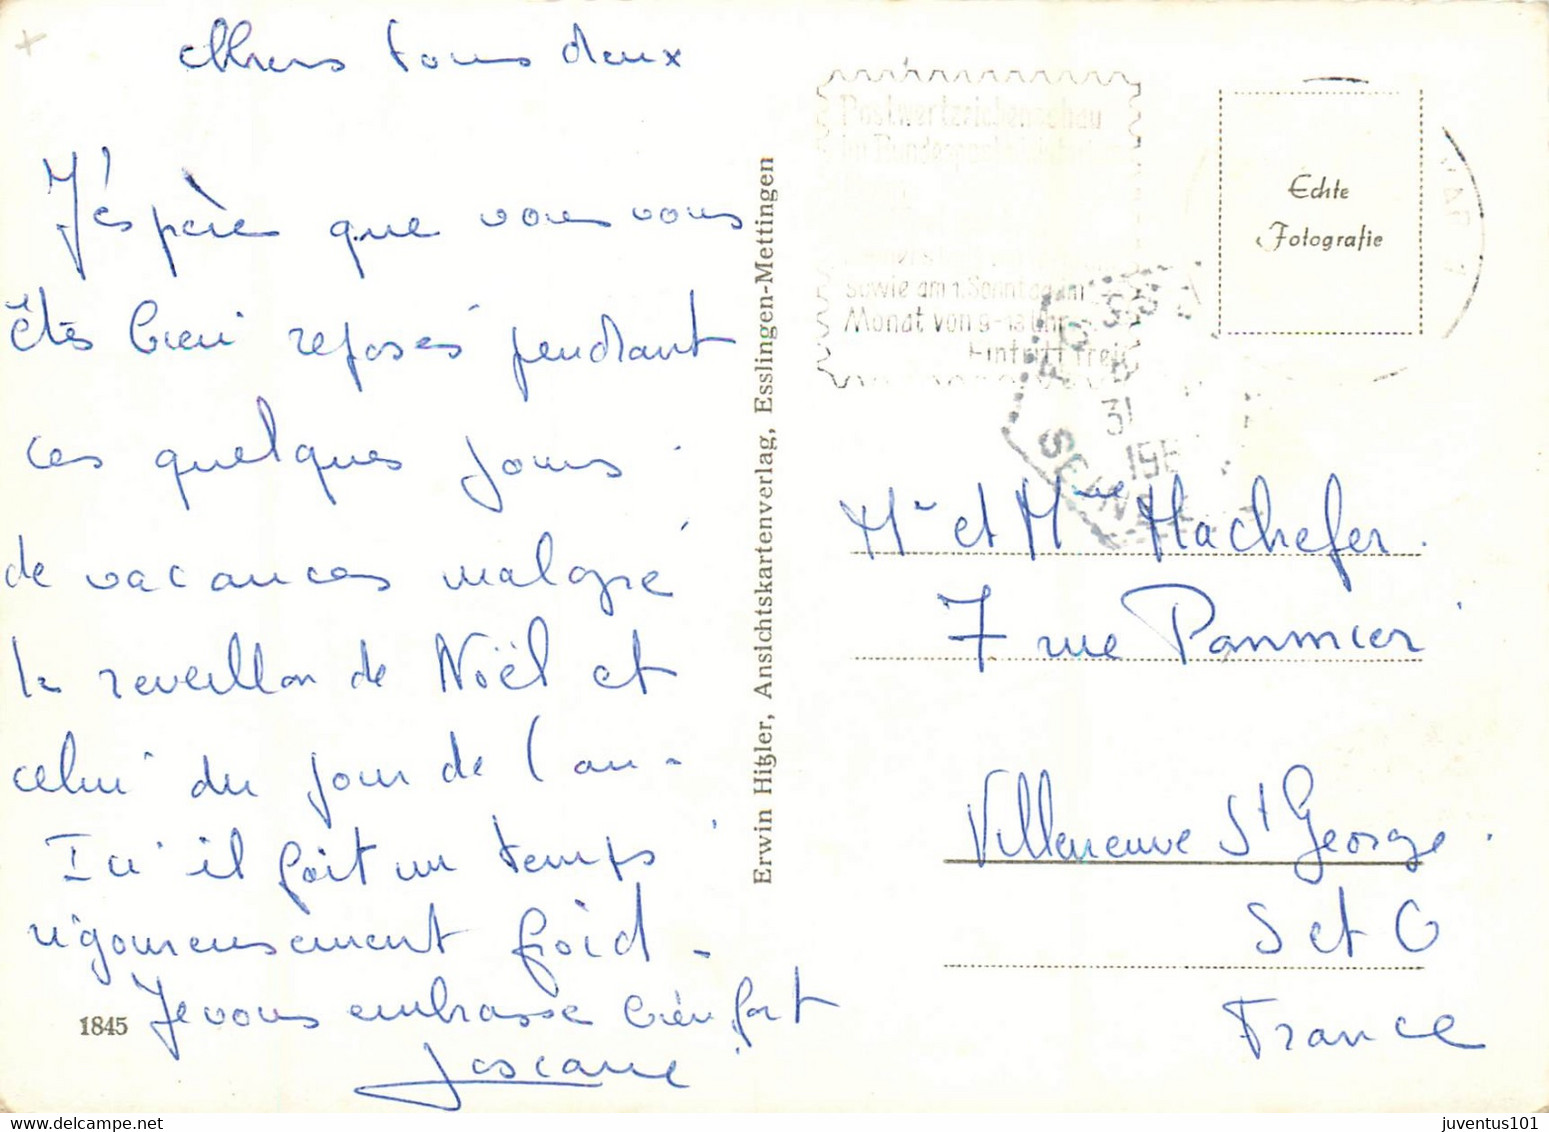 Chers tous deux
J'éspère que vous vous
êtes bien reposés pendant
ces quelques jours
de vacances malgré
le reveillon de Noël et
celui du jour de l'an -
Ici il fait un temps
rigoureusement froid -
Je vous embrasse bien fort
1845
Erwin Hitzler, Ansichtskartenverlag, Esslingen-Mettingen
Postwertzeichenschau
im Bundespost
sowie am 1. Sonntag im
Monat von 9-13 Uhr
Eintritt frei
Echte
Fotografie
31
SEINE
Mr et Mme Machefer.
7 rue
Villeneuve St George.
S et O
France
juventus101